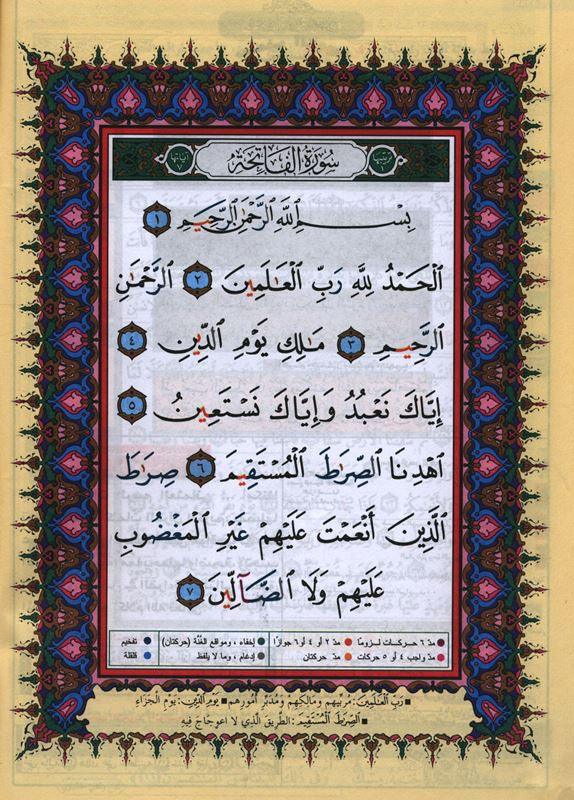 ترتيبها ١ سُورَةُ ٱلْفَاتِحَةِ آياتها ٧
بِسْمِ ٱللَّهِ ٱلرَّحْمَٰنِ ٱلرَّحِيمِ ١
ٱلْحَمْدُ لِلَّهِ رَبِّ ٱلْعَٰلَمِينَ ٢ ٱلرَّحْمَٰنِ
ٱلرَّحِيمِ ٣ مَٰلِكِ يَوْمِ ٱلدِّينِ ٤
إِيَّاكَ نَعْبُدُ وَإِيَّاكَ نَسْتَعِينُ ٥
ٱهْدِنَا ٱلصِّرَٰطَ ٱلْمُسْتَقِيمَ ٦ صِرَٰطَ
ٱلَّذِينَ أَنْعَمْتَ عَلَيْهِمْ غَيْرِ ٱلْمَغْضُوبِ
عَلَيْهِمْ وَلَا ٱلضَّآلِّينَ ٧
مدّ ٦ حركات لزومًا ● مدّ ٢ أو ٤ أو ٦ جوازًا ● إخفاء، ومواقع الغُنَّة (حركتان) ● تفخيم
مدّ واجب ٤ أو ٥ حركات ● مدّ حركتان ● إدغام، وما لا يلفظ ● قلقلة
■ رَبِّ ٱلْعَٰلَمِينَ: مُرَبِّيهِم ومَالِكِهِم ومُدَبِّرِ أُمُورِهِم ■ يَوْمِ ٱلدِّينِ: يَوْمِ الجَزَاءِ
■ ٱلصِّرَٰطَ ٱلْمُسْتَقِيمَ: الطَّرِيقَ الَّذِي لا اعوِجَاجَ فِيهِ